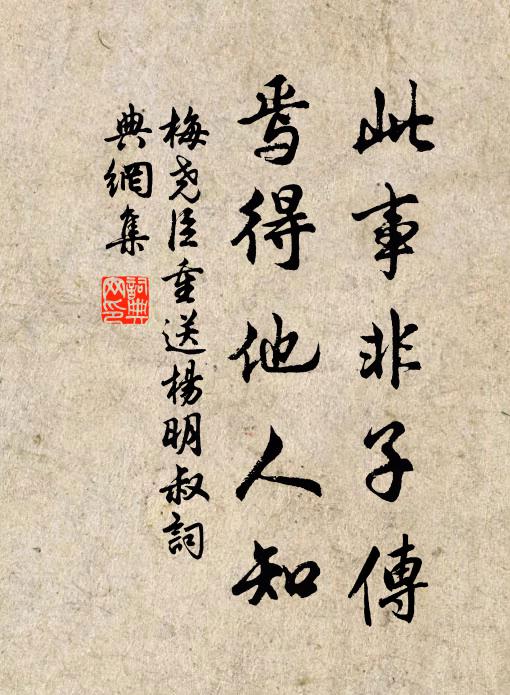 此事非子傳
焉得他人知
梅堯臣重送楊明叔詞
典網集
詞典
网印